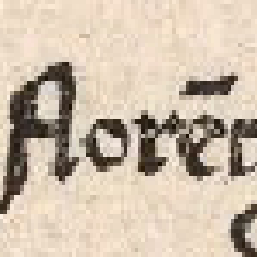 florēt